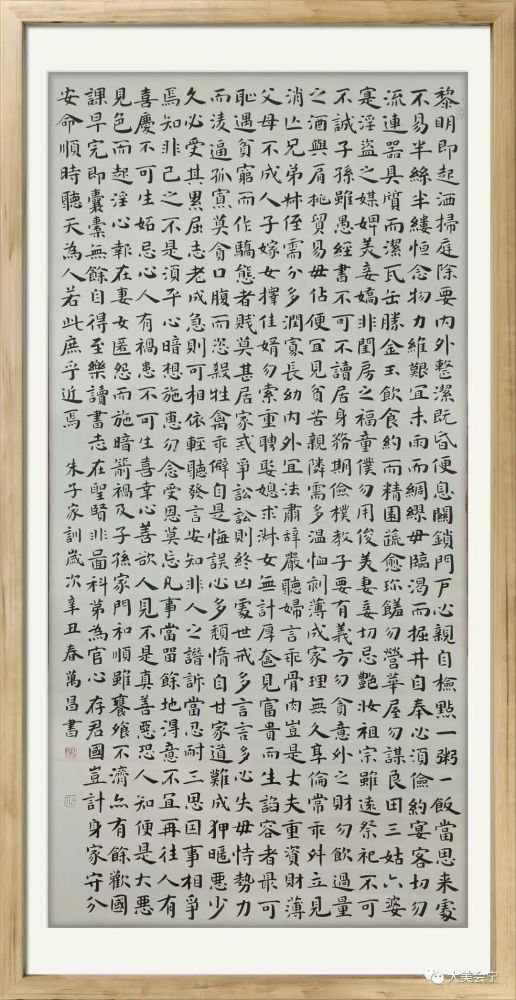 黎明即起洒掃庭除要内外整潔既昏便息關鎖門戶必親自檢點一粥一飯當思来處
不易半絲半縷恒念物力維艱宜未雨而綢繆毋臨渴而掘井自奉必須儉約宴客切勿
流連器具質而潔瓦缶勝金玉飲食約而精園蔬愈珍饈勿營華屋勿謀良田三姑六婆
寔淫盜之媒婢美妾嬌非閨房之福童僕勿用俊美妻妾切忌艷妝祖宗雖遠祭祀不可
不誠子孫雖愚經書不可不讀居身務期儉樸教子要有義方勿貪意外之財勿飲過量
之酒與肩挑貿易毋佔便宜見貧苦親隣需多温恤刻薄成家理無久享倫常乖舛立見
消亡兄弟叔侄需分多潤寡長幼内外宜法肅辞嚴聽婦言乖骨肉豈是丈夫重資財薄
父母不成人子嫁女擇佳婿勿索重聘娶媳求淑女無計厚奩見富貴而生諂容者最可
恥遇貧窮而作驕態者賤莫甚居家戒爭訟訟則終凶處世戒多言言多必失毋恃勢力
而淩逼孤寡莫貪口腹而恣殺牲禽乖僻自是悔誤必多頹惰自甘家道難成狎暱惡少
久必受其累屈志老成急則可相依輕聽發言安知非人之譖訴當忍耐三思因事相爭
焉知非己之不是須平心暗想施惠勿念受恩莫忘凡事當留餘地得意不宜再往人有
喜慶不可生妬忌心人有禍患不可生喜幸心善欲人見不是真善惡恐人知便是大惡
見色而起淫心報在妻女匿怨而施暗箭禍及子孫家門和順雖饔飧不濟亦有餘歡國
課早完即囊橐無餘自得至樂讀書志在聖賢非圖科第為官心存君國豈計身家守分
安命順時聽天為人若此庶乎近焉 朱子家訓歲次辛丑春萬昌書
大美会宁